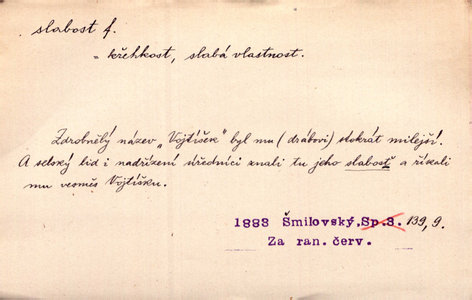 slabost f.
= křehkost, slabá vlastnost.
Zdrobnělý název „Vojtíšek" byl mu (drábovi) stokrát milejší.
A selský lid i nadřízení úředníci znali tu jeho slabost a říkali
mu vesměs Vojtíšku.
1883 Šmilovský, Sp. 3. 139, 9.
Za ran. červ.